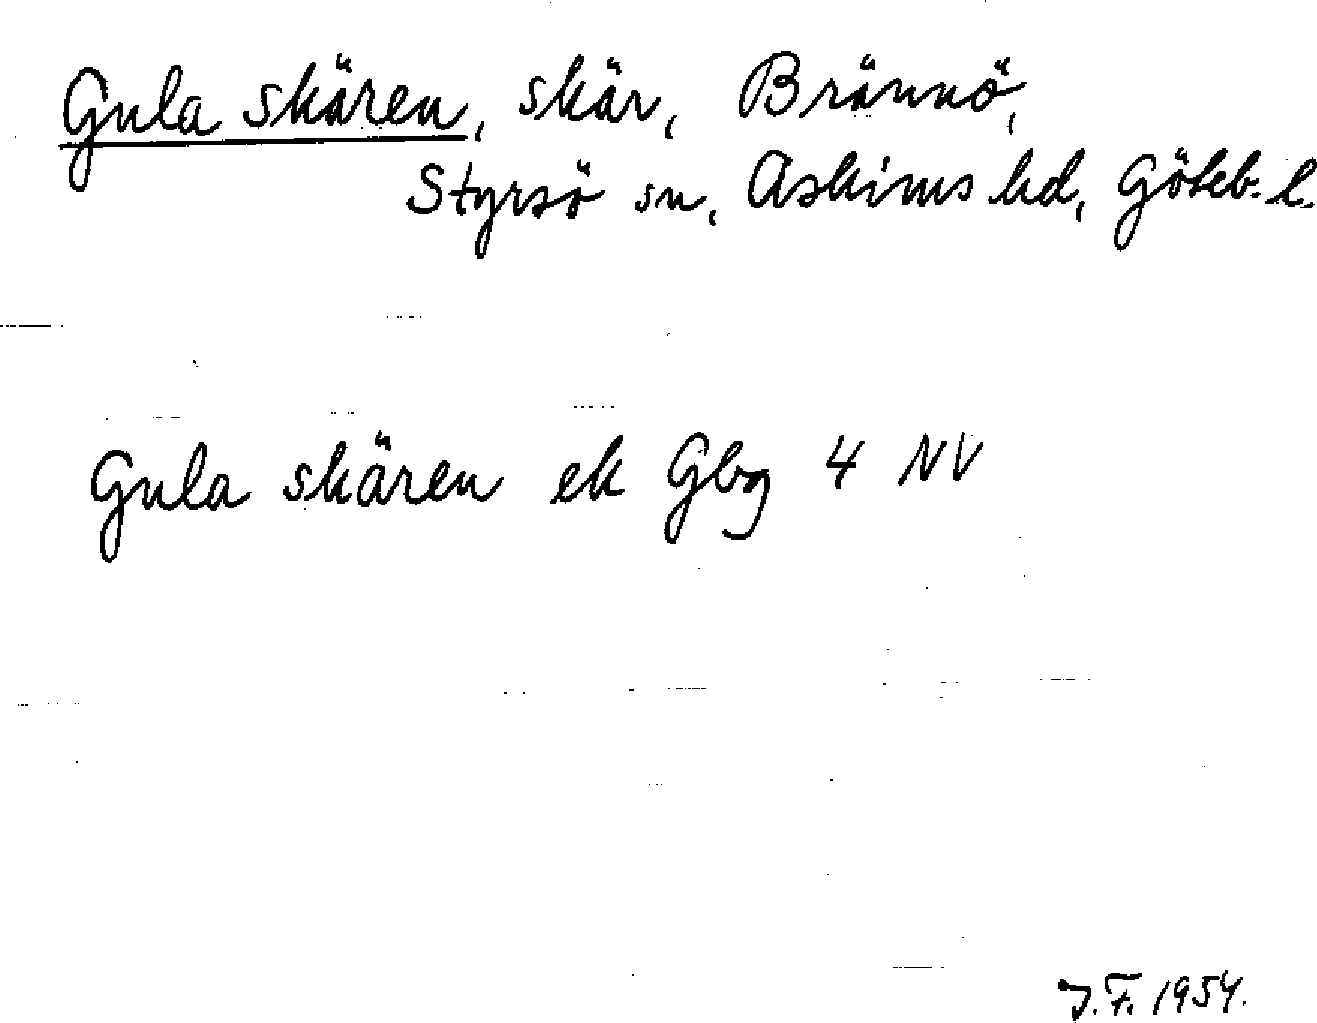 Gula skären, skär, Brännö,
Styrsö sn, Askims hd, Göteb. l.
Gula skären ek Gbg 4 NV
J.F. 1954.